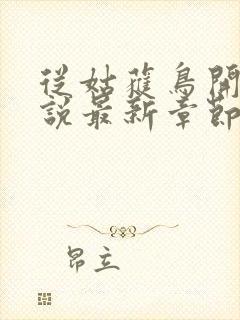 從姑獲鳥開
說最新章節
昂立